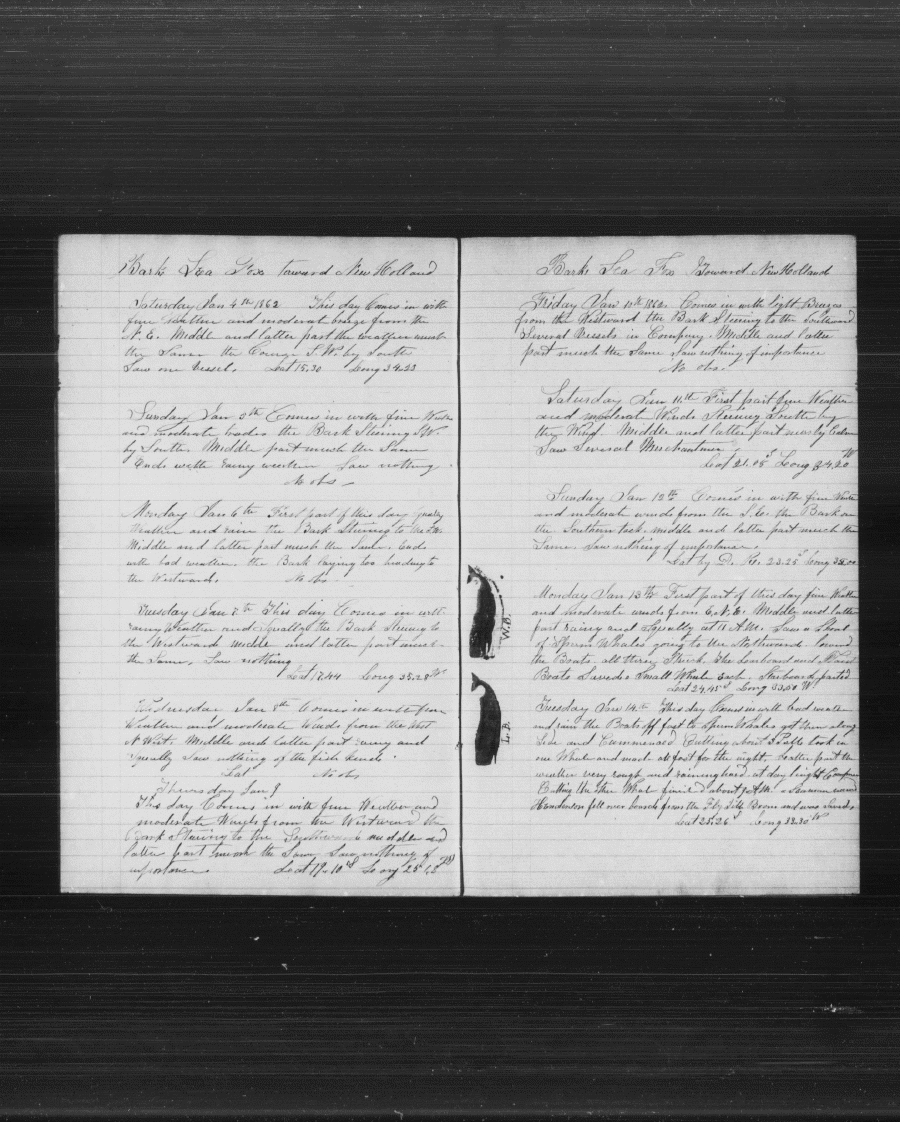 Bark Sea Fox toward New Holland
Saturday Jan 4th 1862 This day Comes in with
fine weather and moderat breze from the
N. E. Middle and latter part the weather much
the Same the Course S. W. by South
Saw one vessel. Lat 15.30 Long 34.23
Sunday Jan 5th Comes in with fine
and moderate the Bark Stering S.W.
by South Middle part much the Same
Ends with rainy Saw nothing
No obs
Monday Jan 6th First part of this day
Weather and rain the Bark Steering to the
Middle and latter part much the Same. Ends
with bad weather. the Bark heading to
the Westward. No obs
Tuesday Jan 7th This day Comes in with
rainy Weather and Squally the Bark Stering to
the Westward middle and latter part much
the Same. Saw nothing
Lat 17.44 Long 35.28 W
Wednesday Jan 8th Comes in with fine
Weather and moderate Winds from the West
N West. Middle and latter part rainy and
Squally Saw nothing of the fish kind.
Lat No obs
Thursday Jan 9
This day Comes in with fine Weather and
moderate Winds from the Westward the
Bark Stering to the Southward middle and
latter part much the Same Saw nothing of
importance. Lat 19.10 S Long
Bark Sea Fox Toward New Holland
Friday Jan 10th 1862. Comes in with light Brezes
from the Westward the Bark Stering to the Southward
Several Vessels in Company. Middle and latter
part much the Same Saw nothing of importance
No obs.
Saturday Jan 11th First part fine Weather
and moderat Winds Stering South by
the Wind. Middle and latter part nearly Calm
Saw Several Merchantmen
Lat 21.05 S Long 34.20 W
Sunday Jan 12th Comes in with fine
and moderate winds from the S.E. the Bark on
the Southern tack. middle and latter part much the
Same. Saw nothing of importance.
Lat by D. R. 23.25 S Long
Monday Jan 13th First part of this day fine Weather
and moderate winds from E.N.E. Middle and latter
part rainy and Squally at 11 A.M. Saw a Shoal
of Sperm Whales going to the Northward Lowerd
the Boats all three Struck. the Larboard and Waist
Boats Saved a Small Whale each. Starboard parted
Lat 24.45 S Long 33.50 W
W.B.
Tuesday Jan 14th This day Comes in with bad weater
and rain the Boats off fast to Sperm Whales got them along
Side and Cummenced Cutting about 3 P.M. took in
one Whale and made all fast for the night. latter part the
weather very rough and raining hard at day light Commenced
Cutting the other Whale finised about 9 A.M. a Seaman named
Handinton fell over board from the Fly Jibb Boom and was Saved.
Lat 25.26 S Long 33.30 W
L.B.